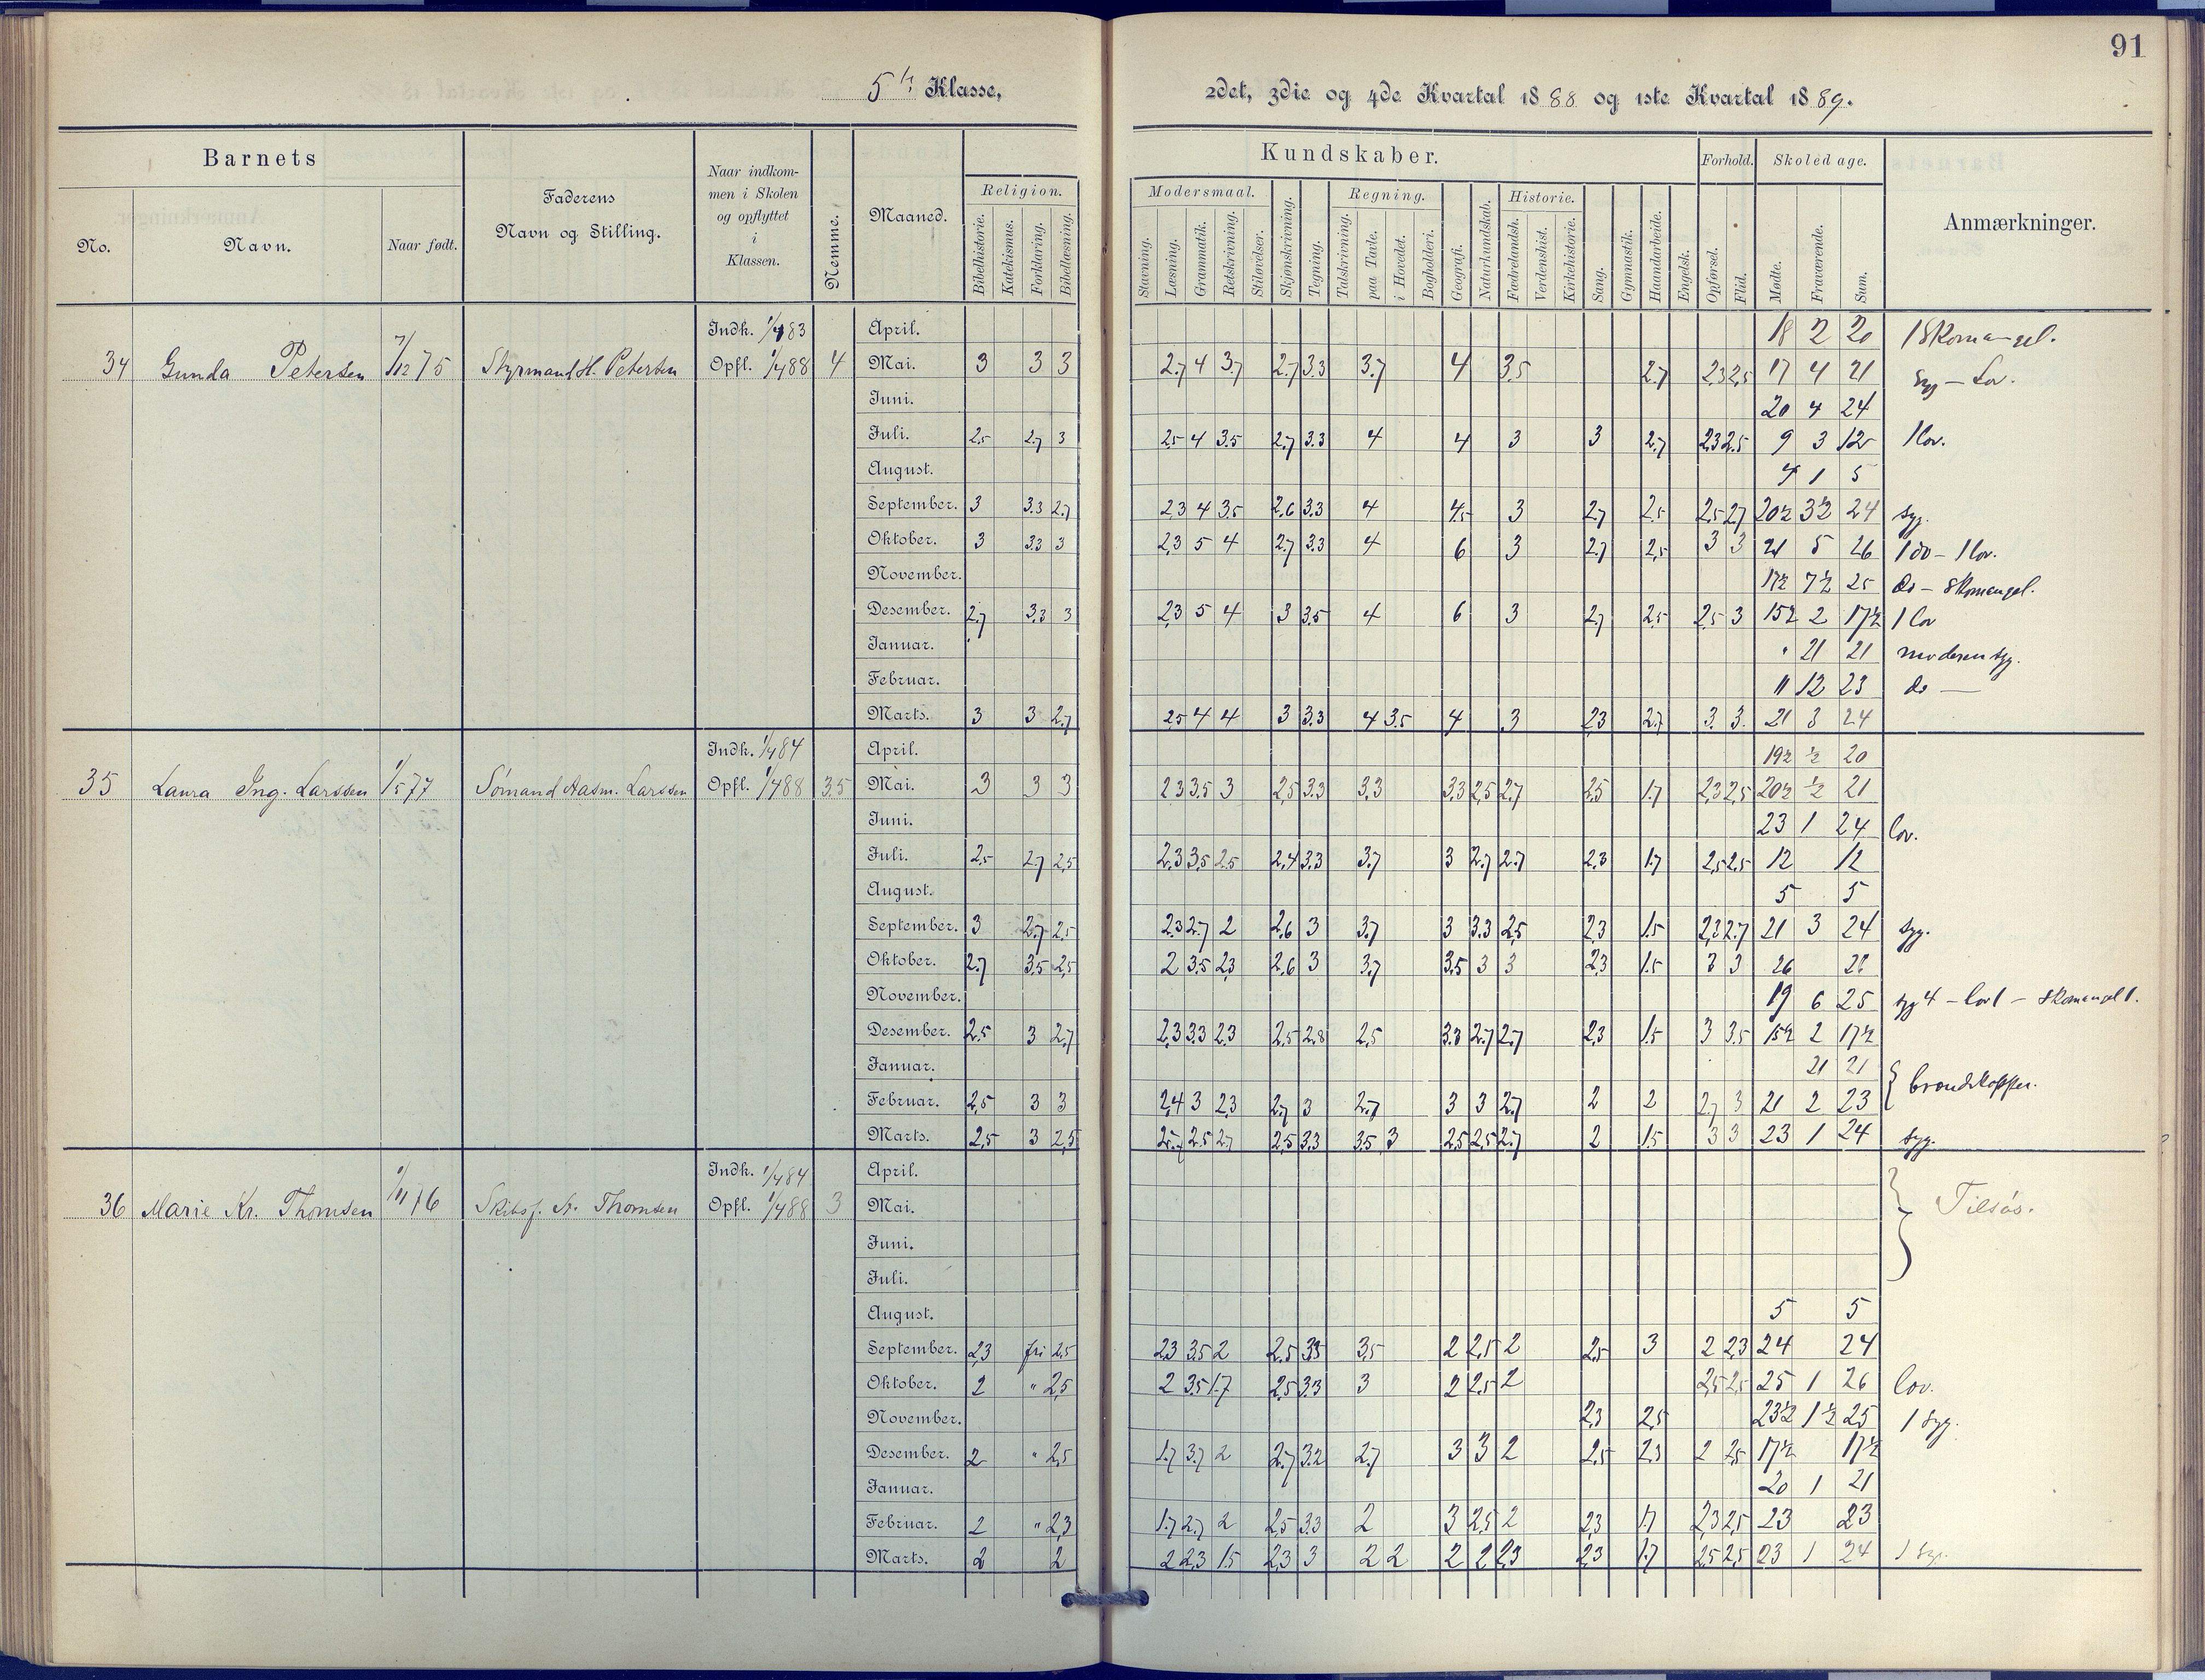 91
5te Klasse, 2det, 3die og 4de Kvartal 1888 og 1ste Kvartal 1889.
Barnets
No. Navn. Naar født.
Faderens Navn og Stilling.
Naar indkommen i Skolen og opflyttet i Klassen.
Nemme.
Maaned.
Kundskaber.
Religion. Bibelhistorie. Katekismus. Forklaring. Bibellæsning.
Modersmaal. Stavning. Læsning. Grammatik. Retskrivning. Stiløvelser.
Skjønskrivning. Tegning.
Regning. Talskrivning. paa Tavle. i Hovedet. Bogholderi.
Geografi. Naturkundskab.
Historie. Fædrelandsh. Verdenshist. Kirkehistorie.
Sang. Gymnastik. Haandarbeide. Engelsk.
Forhold. Opførsel. Flid.
Skoledage. Mødte. Fraværende. Sum.
Anmærkninger.
34 Gunda Petersen 7/12 75 Styrmand H. Petersen Indk. 1/4 83 Opfl. 1/4 88 4
April. 18 2 20 1 Skomangel.
Mai. 3 3 3 2.7 4 3.7 2.7 3.3 3.7 4 3.5 2.7 2.3 2.5 17 4 21 syg – Lov.
Juni. 20 4 24
Juli. 2.5 2.7 3 2.5 4 3.5 2.7 3.3 4 4 3 3 2.7 2.3 2.5 9 3 12 1 lov.
August. 4 1 5
September. 3 3.3 2.7 2.3 4 3.5 2.6 3.3 4 4.5 3 2.7 2.5 2.5 2.7 20½ 3½ 24 syg.
Oktober. 3 3.3 3 2.3 5 4 2.7 3.3 4 6 3 2.7 2.5 3 3 21 5 26 1 do – 1 lov.
November. 17½ 7½ 25 do – Skomangel.
Desember. 2.7 3.3 3 2.3 5 4 3 3.5 4 6 3 2.7 2.5 2.5 3 15½ 2 17½ 1 lov
Januar. " 21 21 moderen syg.
Februar. 11 12 23 do —
Marts. 3 3 2.7 2.5 4 4 3 3.3 4 3.5 4 3 2.3 2.7 3. 3. 21 3 24
35 Laura Ing. Larssen 1/5 77 Sømand Aasm. Larssen Indk. 1/4 84 Opfl. 1/4 88 3.5
April. 19½ ½ 20
Mai. 3 3 3 2.3 3.5 3 2.5 3.3 3.3 3.3 2.5 2.7 2.5 1.7 2.3 2.5 20½ ½ 21
Juni. 23 1 24 lov.
Juli. 2.5 2.7 2.5 2.3 3.5 2.5 2.4 3.3 3.7 3 2.7 2.7 2.3 1.7 2.5 2.5 12 12
August. 5 5
September. 3 2.7 2.5 2.3 2.7 2 2.6 3 3.7 3 3.3 2.5 2.3 1.5 2.3 2.7 21 3 24 syg.
Oktober. 2.7 3.5 2.5 2 3.5 2.3 2.6 3 3.7 3.5 3 3 2.3 1.5 3 3 26 26
November. 19 6 25 syg 4 – lov 1 – Skomangel 1.
Desember. 2.5 3 2.7 2.3 3.3 2.3 2.5 2.8 2.5 3.3 2.7 2.7 2.3 1.5 3 3.5 15½ 2 17½
Januar. 21 21
Februar. 2.5 3 3 2.4 3 2.3 2.7 3 2.7 3 3 2.7 2 2 2.7 3 21 2 23
Marts. 2.5 3 2.5 2.5 2.7 2.5 3.3 3.5 3 2.5 2.5 2.7 2 1.5 3 3 23 1 24 syg.
36 Marie Kr. Thomsen 1/11 76 Skibsf. N. Thomsen Indk. 1/4 84 Opfl. 1/4 88 3
April.
Mai. Tilsøs.
Juni.
Juli.
August. 5 5
September. 2.3 fri 2.5 2.3 3.5 2 2.5 3.3 3.5 2 2.5 2 2.5 3 2 2.3 24 24
Oktober. 2 " 2.5 2 3.5 1.7 2.5 3.3 3 2 2.5 2 2.5 2.5 25 1 26 lov.
November. 2.3 2.5 23½ 1½ 25 1 syg.
Desember. 2 " 2.5 1.7 3.7 2 2.7 3.2 2.7 3 3 2 2.5 2.3 2 2.5 17½ 17½
Januar. 20 1 21
Februar. 2 " 2.3 1.7 2.7 2 2.5 3.3 2 3 2.5 2 2.3 1.7 2.3 2.5 23 23
Marts. 2 2 2 2.3 1.5 2.3 3 2 2 2 2 2.3 2.3 1.7 2.5 2.5 23 1 24 1 syg.